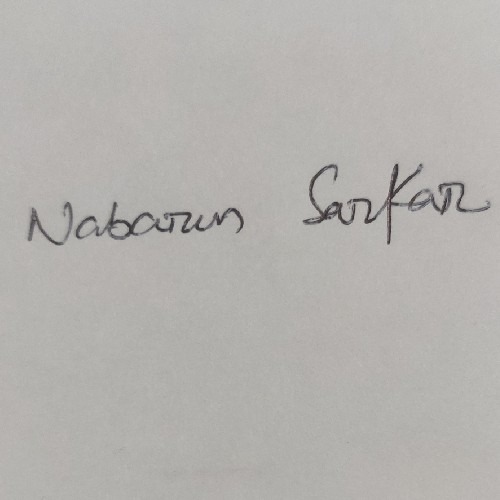 Nabarun Sarkar